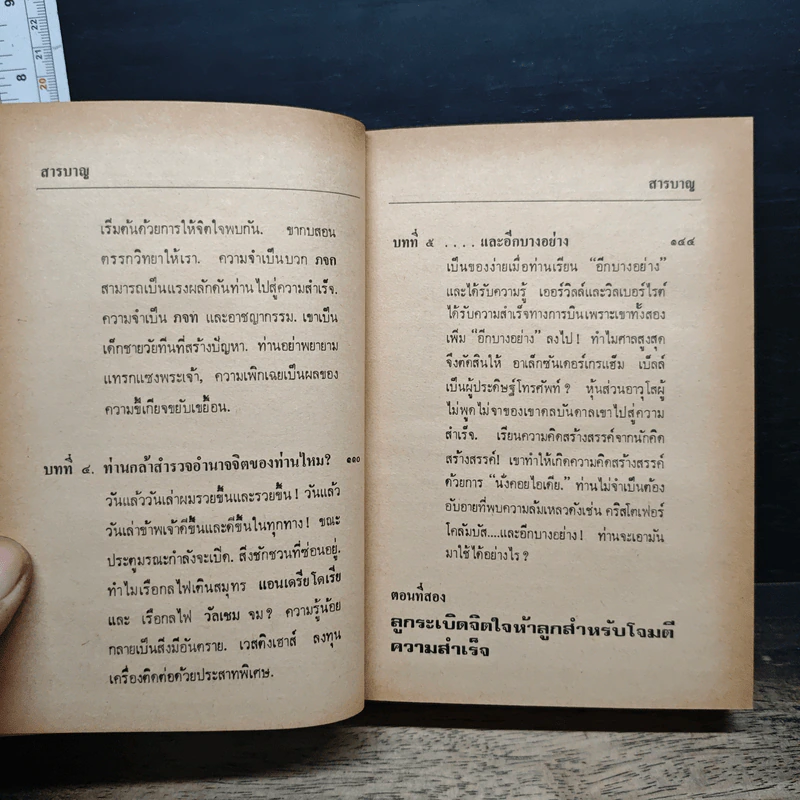 สารบาญ
เริ่มต้นด้วยการให้จิตใจพบกัน. ขากบสอน
ตรรกวิทยาให้เรา. ความจำเป็นบวก ภจก
สามารถเป็นแรงผลักดันท่านไปสู่ความสำเร็จ.
ความจำเป็น ภจท และอาชญากรรม. เขาเป็น
เด็กชายวัยทีนที่สร้างปัญหา. ท่านอย่าพยายาม
แทรกแซงพระเจ้า, ความเพิกเฉยเป็นผลของ
ความขี้เกียจขยับเขยื้อน.
บทที่ ๔. ท่านกล้าสำรวจอำนาจจิตของท่านไหม? ๑๑๐
วันแล้ววันเล่าผมรวยขึ้นและรวยขึ้น! วันแล้ว
วันเล่าข้าพเจ้าดีขึ้นและดีขึ้นในทุกทาง! ขณะ
ประตูมรณะกำลังจะเปิด. สิ่งชักชวนที่ซ่อนอยู่.
ทำไมเรือกลไฟเดินสมุทร แอนเดรีย โดเรีย
และ เรือกลไฟ วัลเชม จม? ความรู้น้อย
กลายเป็นสิ่งมีอันตราย. เวสติงเฮาส์ ลงทุน
เครื่องติดต่อด้วยประสาทพิเศษ.
สารบาญ
บทที่ ๕ .... และอีกบางอย่าง ๑๔๔
เป็นของง่ายเมื่อท่านเรียน "อีกบางอย่าง"
และได้รับความรู้ เออร์วิลล์และวิลเบอร์ไรต์
ได้รับความสำเร็จทางการบินเพราะเขาทั้งสอง
เพิ่ม "อีกบางอย่าง" ลงไป! ทำไมศาลสูงสุด
จึงตัดสินให้ อาเล็กซันเดอร์เกรแฮ็ม เบ็ลล์
เป็นผู้ประดิษฐ์โทรศัพท์? หุ้นส่วนอาวุโสผู้
ไม่พูดไม่จาของเขาดลบันดาลเขาไปสู่ความ
สำเร็จ. เรียนความคิดสร้างสรรค์จากนักคิด
สร้างสรรค์! เขาทำให้เกิดความคิดสร้างสรรค์
ด้วยการ "นั่งคอยไอเดีย." ท่านไม่จำเป็นต้อง
อับอายที่พบความล้มเหลวดังเช่น คริสโตเฟอร์
โคลัมบัส....และอีกบางอย่าง! ท่านจะเอามัน
มาใช้ได้อย่างไร?
ตอนที่สอง
ลูกระเบิดจิตใจห้าลูกสำหรับโจมตี
ความสำเร็จ
9
8
22
21
20